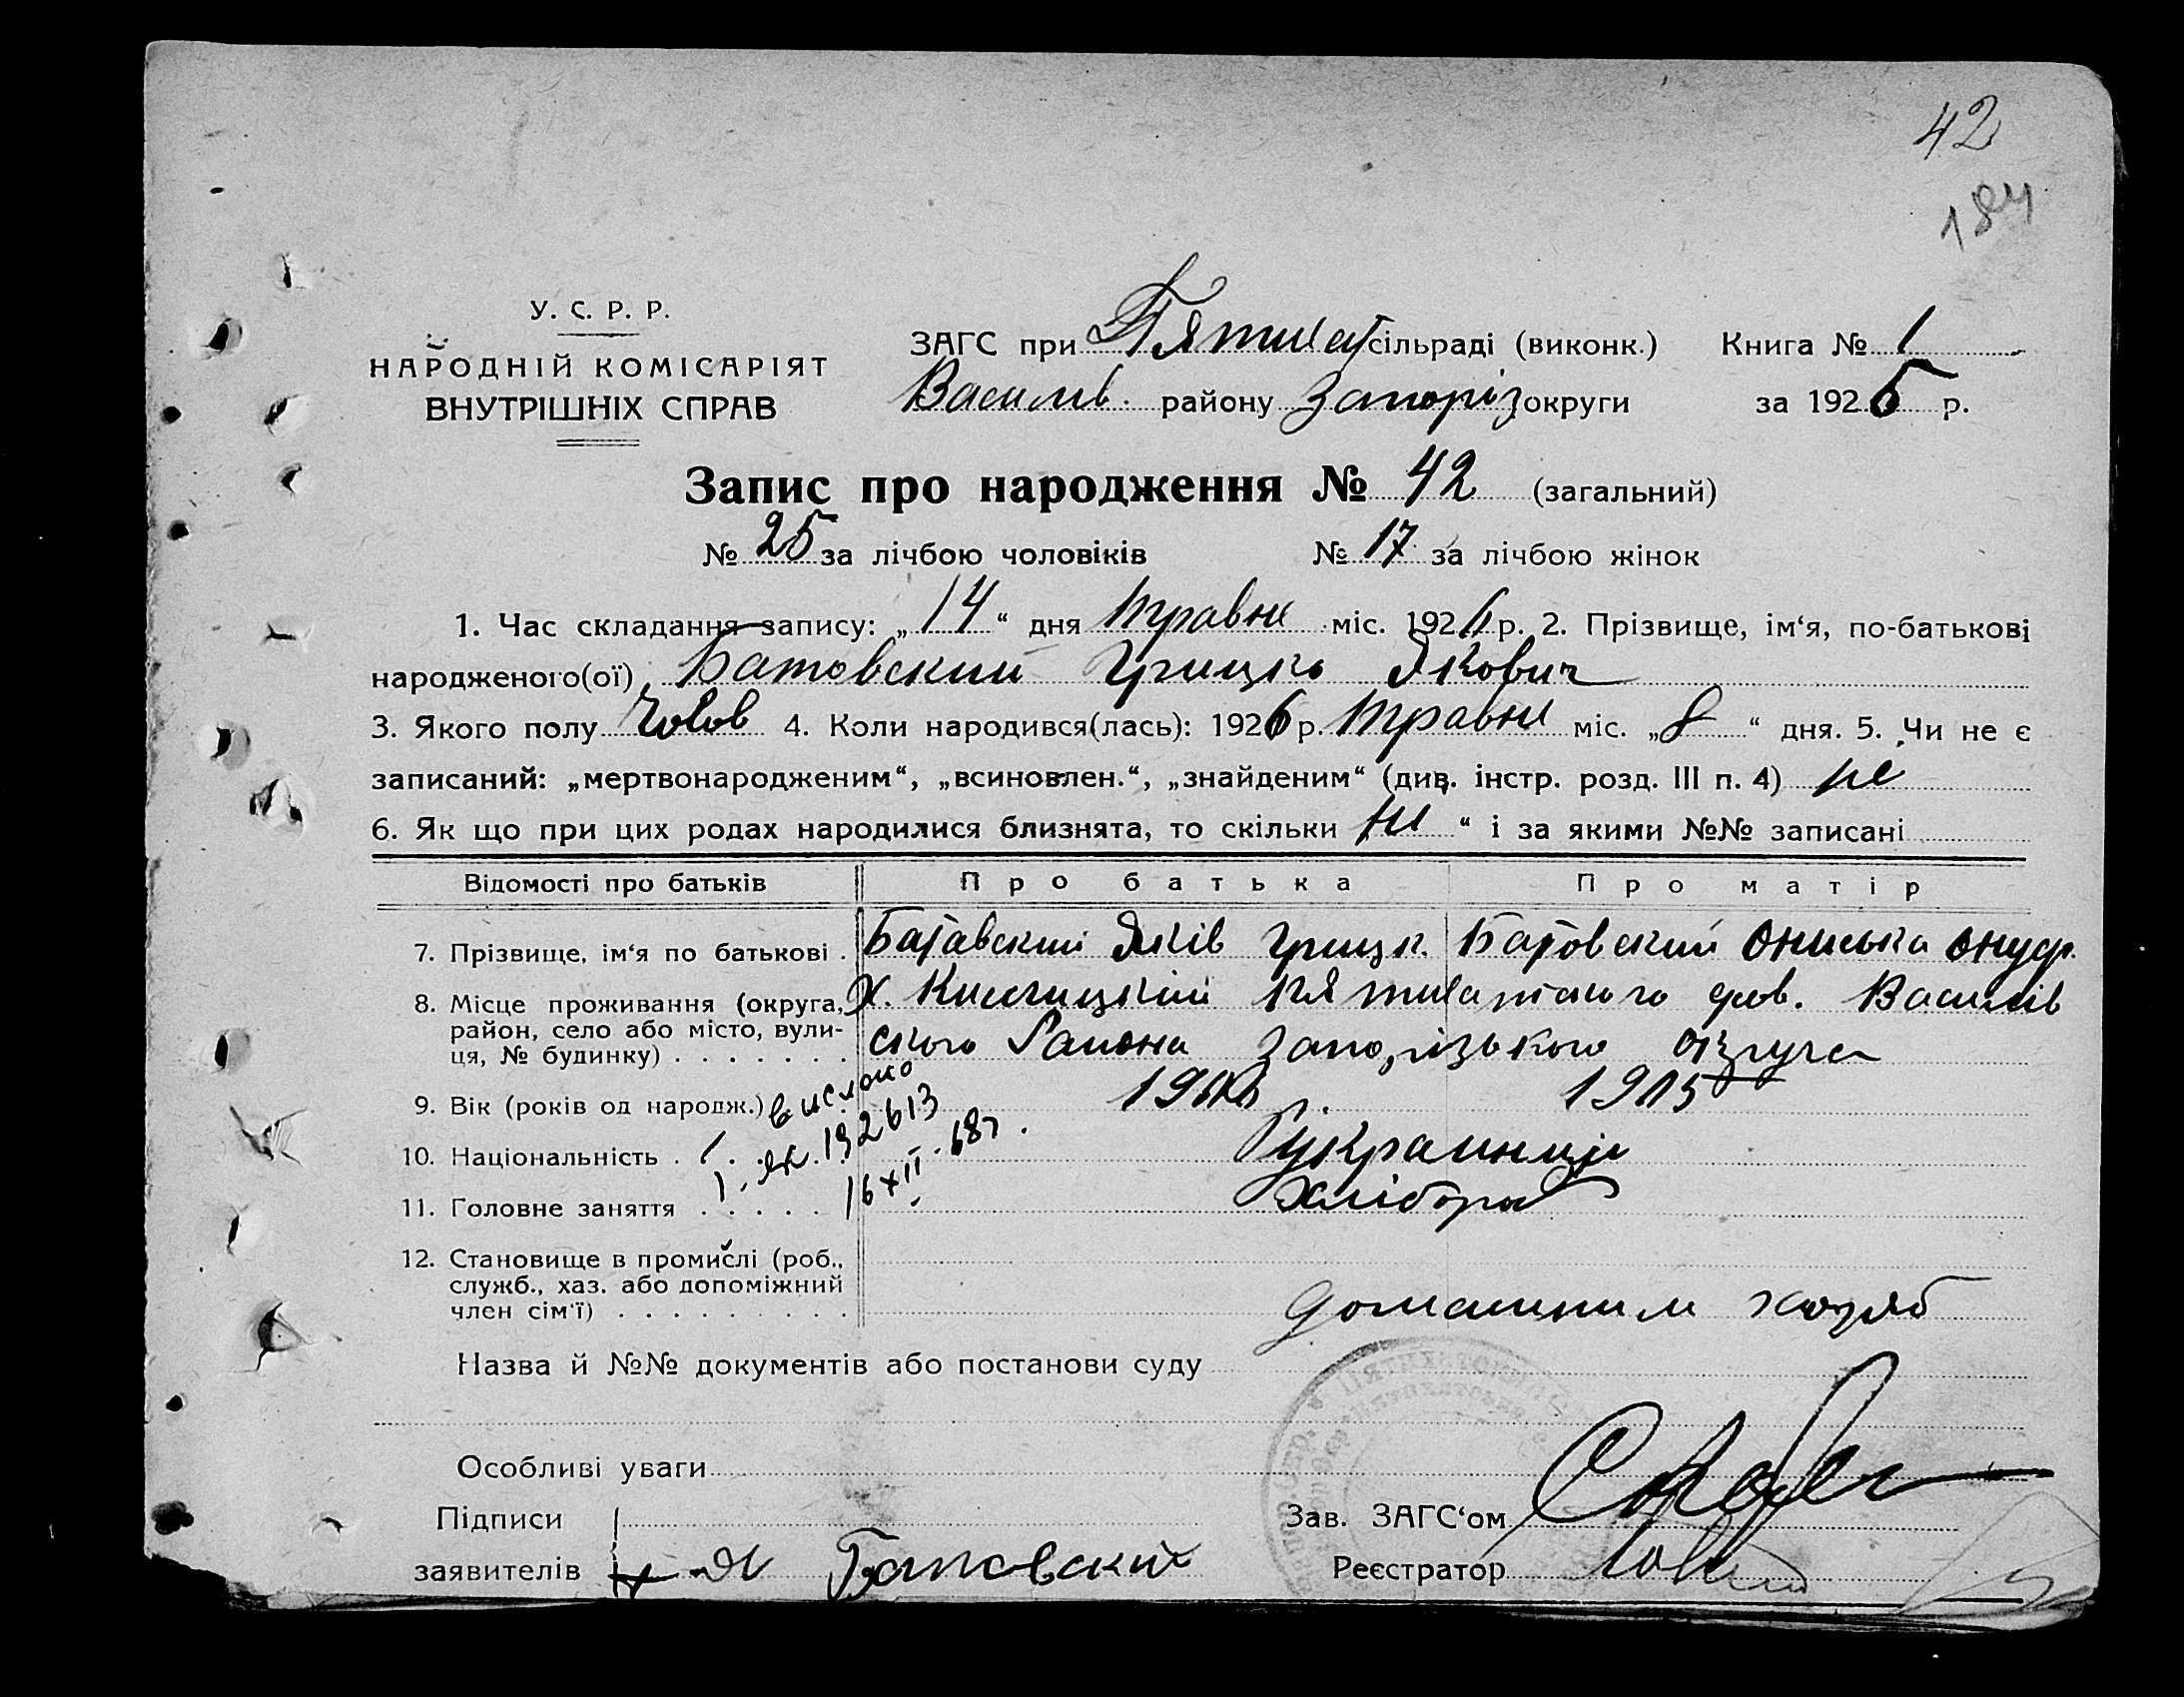 42
184
У. С. Р. Р.
НАРОДНІЙ КОМІСАРІЯТ
ВНУТРІШНІХ СПРАВ
ЗАГС при Пятихат сільраді (виконк.) Книга № 1
Василів. району Запоріз округи за 1926 р.
Запис про народження № 42 (загальний)
№ 25 за лічбою чоловіків № 17 за лічбою жінок
1. Час складання запису: „14“ дня травня міс. 1926 р. 2. Прізвище, ім‘я, по-батькові
народженого(ої) Батовский Грицко Якович
3. Якого полу Чолов 4. Коли народився(лась): 1926 р. травня міс. „8“ дня. 5. Чи не є
записаний: „мертвонародженим“, „всиновлен.“, „знайденим“ (див. інстр. розд. III п. 4) не
6. Як що при цих родах народилися близнята, то скільки ні “ і за якими №№ записані
Відомості про батьків Про батька Про матір
7. Прізвище, ім‘я по батькові . Батавский Яків Грицк. Батовский Ониська Онуфр.
8. Місце проживання (округа, район, село або місто, вулиця, № будинку) . . . . . . . Х. Василів
ского Района Запорізького округа
9. Вік (років од народж.) 1905
10. Національність . украинци
11. Головне заняття . . . . . Хлібороб
16 XII 68
12. Становище в промислі (роб.,
служб., хаз. або допоміжний
член сім‘ї) . . . . . . . . . домашним хозяб
Назва й №№ документів або постанови суду
Особливі уваги
Підписи
заявителів Я Батовский
Зав. ЗАГС‘ом
Реєстратор